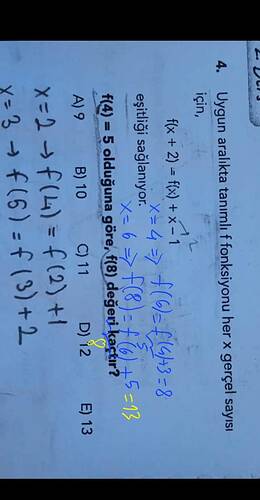 4. Uygun aralıkta tanımlı f fonksiyonu her x gerçel sayısı
için,
f(x + 2) = f(x) + x - 1
x=4 => f(6)=f(4)+3=8
eşitliği sağlanıyor.
x=6 => f(8)=f(6)+5=13
8
f(4) = 5 olduğuna göre, f(8) değeri kaçtır?
A) 9 B) 10 C) 11 D) 12 E) 13
x=2 → f(4)=f(2)+1
x=3 → f(5)=f(3)+2